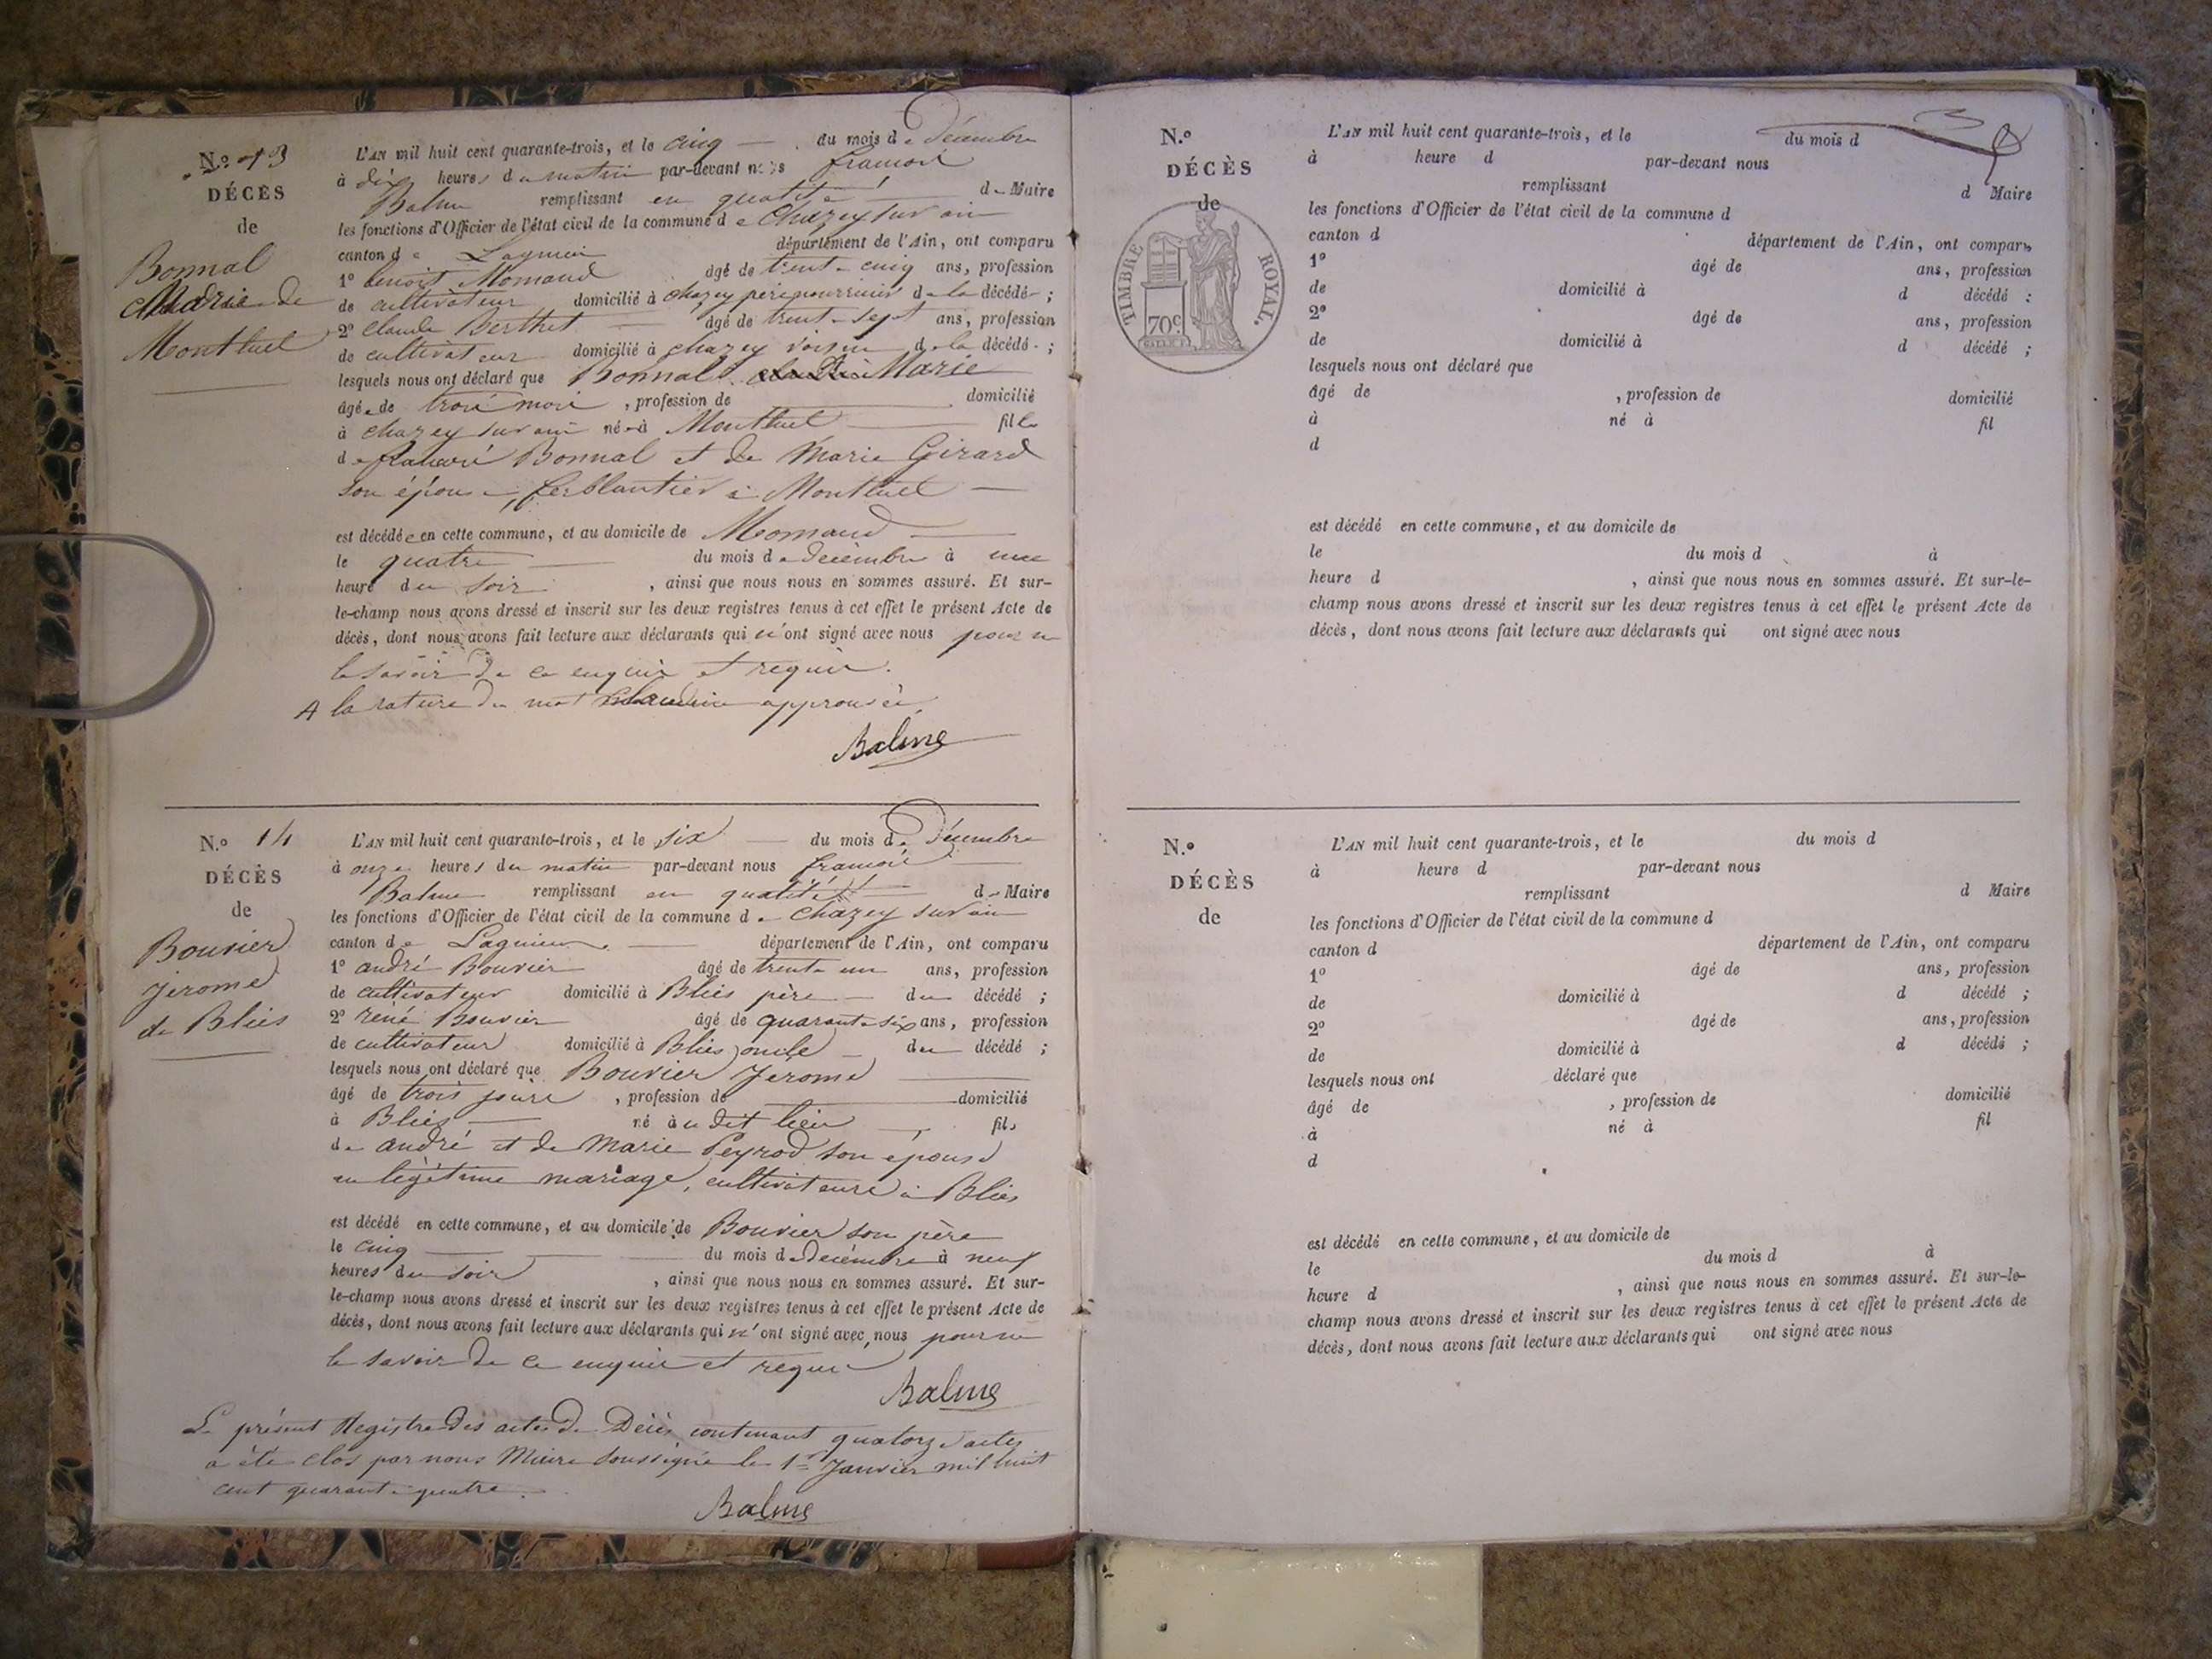 N.º 13
DÉCÈS
de
Bonnal
Marie de
Montluel
L'AN mil huit cent quarante-trois, et le cinq du mois de Décembre
à dix heures du matin par-devant nous françois
Balme remplissant en qualité de Maire
les fonctions d'Officier de l'état civil de la commune de Chazey sur ain
canton de Lagnieu département de l'Ain, ont comparu
1º benoit Momand âgé de trente cinq ans, profession
de cultivateur domicilié à chazey père nourricier de la décédée ;
2º claude Berthet âgé de trente sept ans, profession
de cultivateur domicilié à chazey voisin de la décédée ;
lesquels nous ont déclaré que Bonnal Marie
âgée de trois mois , profession de domicilié
à chazey sur ain née à Montluel fille
de françois Bonnal et de Marie Girard
son épouse, ferblantier à Montluel
est décédée en cette commune, et au domicile de Momand
le quatre du mois de Décembre à une
heure du soir , ainsi que nous nous en sommes assuré. Et sur-
le-champ nous avons dressé et inscrit sur les deux registres tenus à cet effet le présent Acte de
décès, dont nous avons fait lecture aux déclarants qui n'ont signé avec nous pour ne
le savoir de ce enquis et requis.
A la rature du mot claudine approuvée.
Balme
N.º 14
DÉCÈS
de
Bouvier
jerome
de Blies
L'AN mil huit cent quarante-trois, et le six du mois de Décembre
à onze heures du matin par-devant nous françois
Balme remplissant en qualité de Maire
les fonctions d'Officier de l'état civil de la commune de Chazey sur ain
canton de Lagnieu département de l'Ain, ont comparu
1º andré Bouvier âgé de trente un ans, profession
de cultivateur domicilié à Blies père du décédé ;
2º réné Bouvier âgé de quarante six ans, profession
de cultivateur domicilié à Blies oncle du décédé ;
lesquels nous ont déclaré que Bouvier Jerome
âgé de trois jours , profession de domicilié
à Blies né au dit lieu fils
de andré et de Marie Peyrod son épouse
en légitime mariage, cultivateurs à Blies
est décédé en cette commune, et au domicile de Bouvier son père
le cinq du mois de Décembre à neuf
heures du soir , ainsi que nous nous en sommes assuré. Et sur-
le-champ nous avons dressé et inscrit sur les deux registres tenus à cet effet le présent Acte de
décès, dont nous avons fait lecture aux déclarants qui n'ont signé avec nous pour ne
le savoir de ce enquis et requis
Balme
Le présent Registre des actes de Décès contenant quatorze actes
a été clos par nous Maire soussigné le 1er Janvier mil huit
cent quarante quatre.
Balme
N.º
DÉCÈS
de
TIMBRE ROYAL.
70c
L'AN mil huit cent quarante-trois, et le du mois d
à heure d par-devant nous
remplissant d Maire
les fonctions d'Officier de l'état civil de la commune d
canton d département de l'Ain, ont comparu
1º âgé de ans, profession
de domicilié à d décédé :
2º âgé de ans, profession
de domicilié à d décédé ;
lesquels nous ont déclaré que
âgé de , profession de domicilié
à né à fil
d
est décédé en cette commune, et au domicile de
le du mois d à
heure d , ainsi que nous nous en sommes assuré. Et sur-le-
champ nous avons dressé et inscrit sur les deux registres tenus à cet effet le présent Acte de
décès, dont nous avons fait lecture aux déclarants qui ont signé avec nous
N.º
DÉCÈS
de
L'AN mil huit cent quarante-trois, et le du mois d
à heure d par-devant nous
remplissant d Maire
les fonctions d'Officier de l'état civil de la commune d
canton d département de l'Ain, ont comparu
1º âgé de ans, profession
de domicilié à d décédé ;
2º âgé de ans, profession
de domicilié à d décédé ;
lesquels nous ont déclaré que
âgé de , profession de domicilié
à né à fil
d
est décédé en cette commune, et au domicile de
le du mois d à
heure d , ainsi que nous nous en sommes assuré. Et sur-le-
champ nous avons dressé et inscrit sur les deux registres tenus à cet effet le présent Acte de
décès, dont nous avons fait lecture aux déclarants qui ont signé avec nous